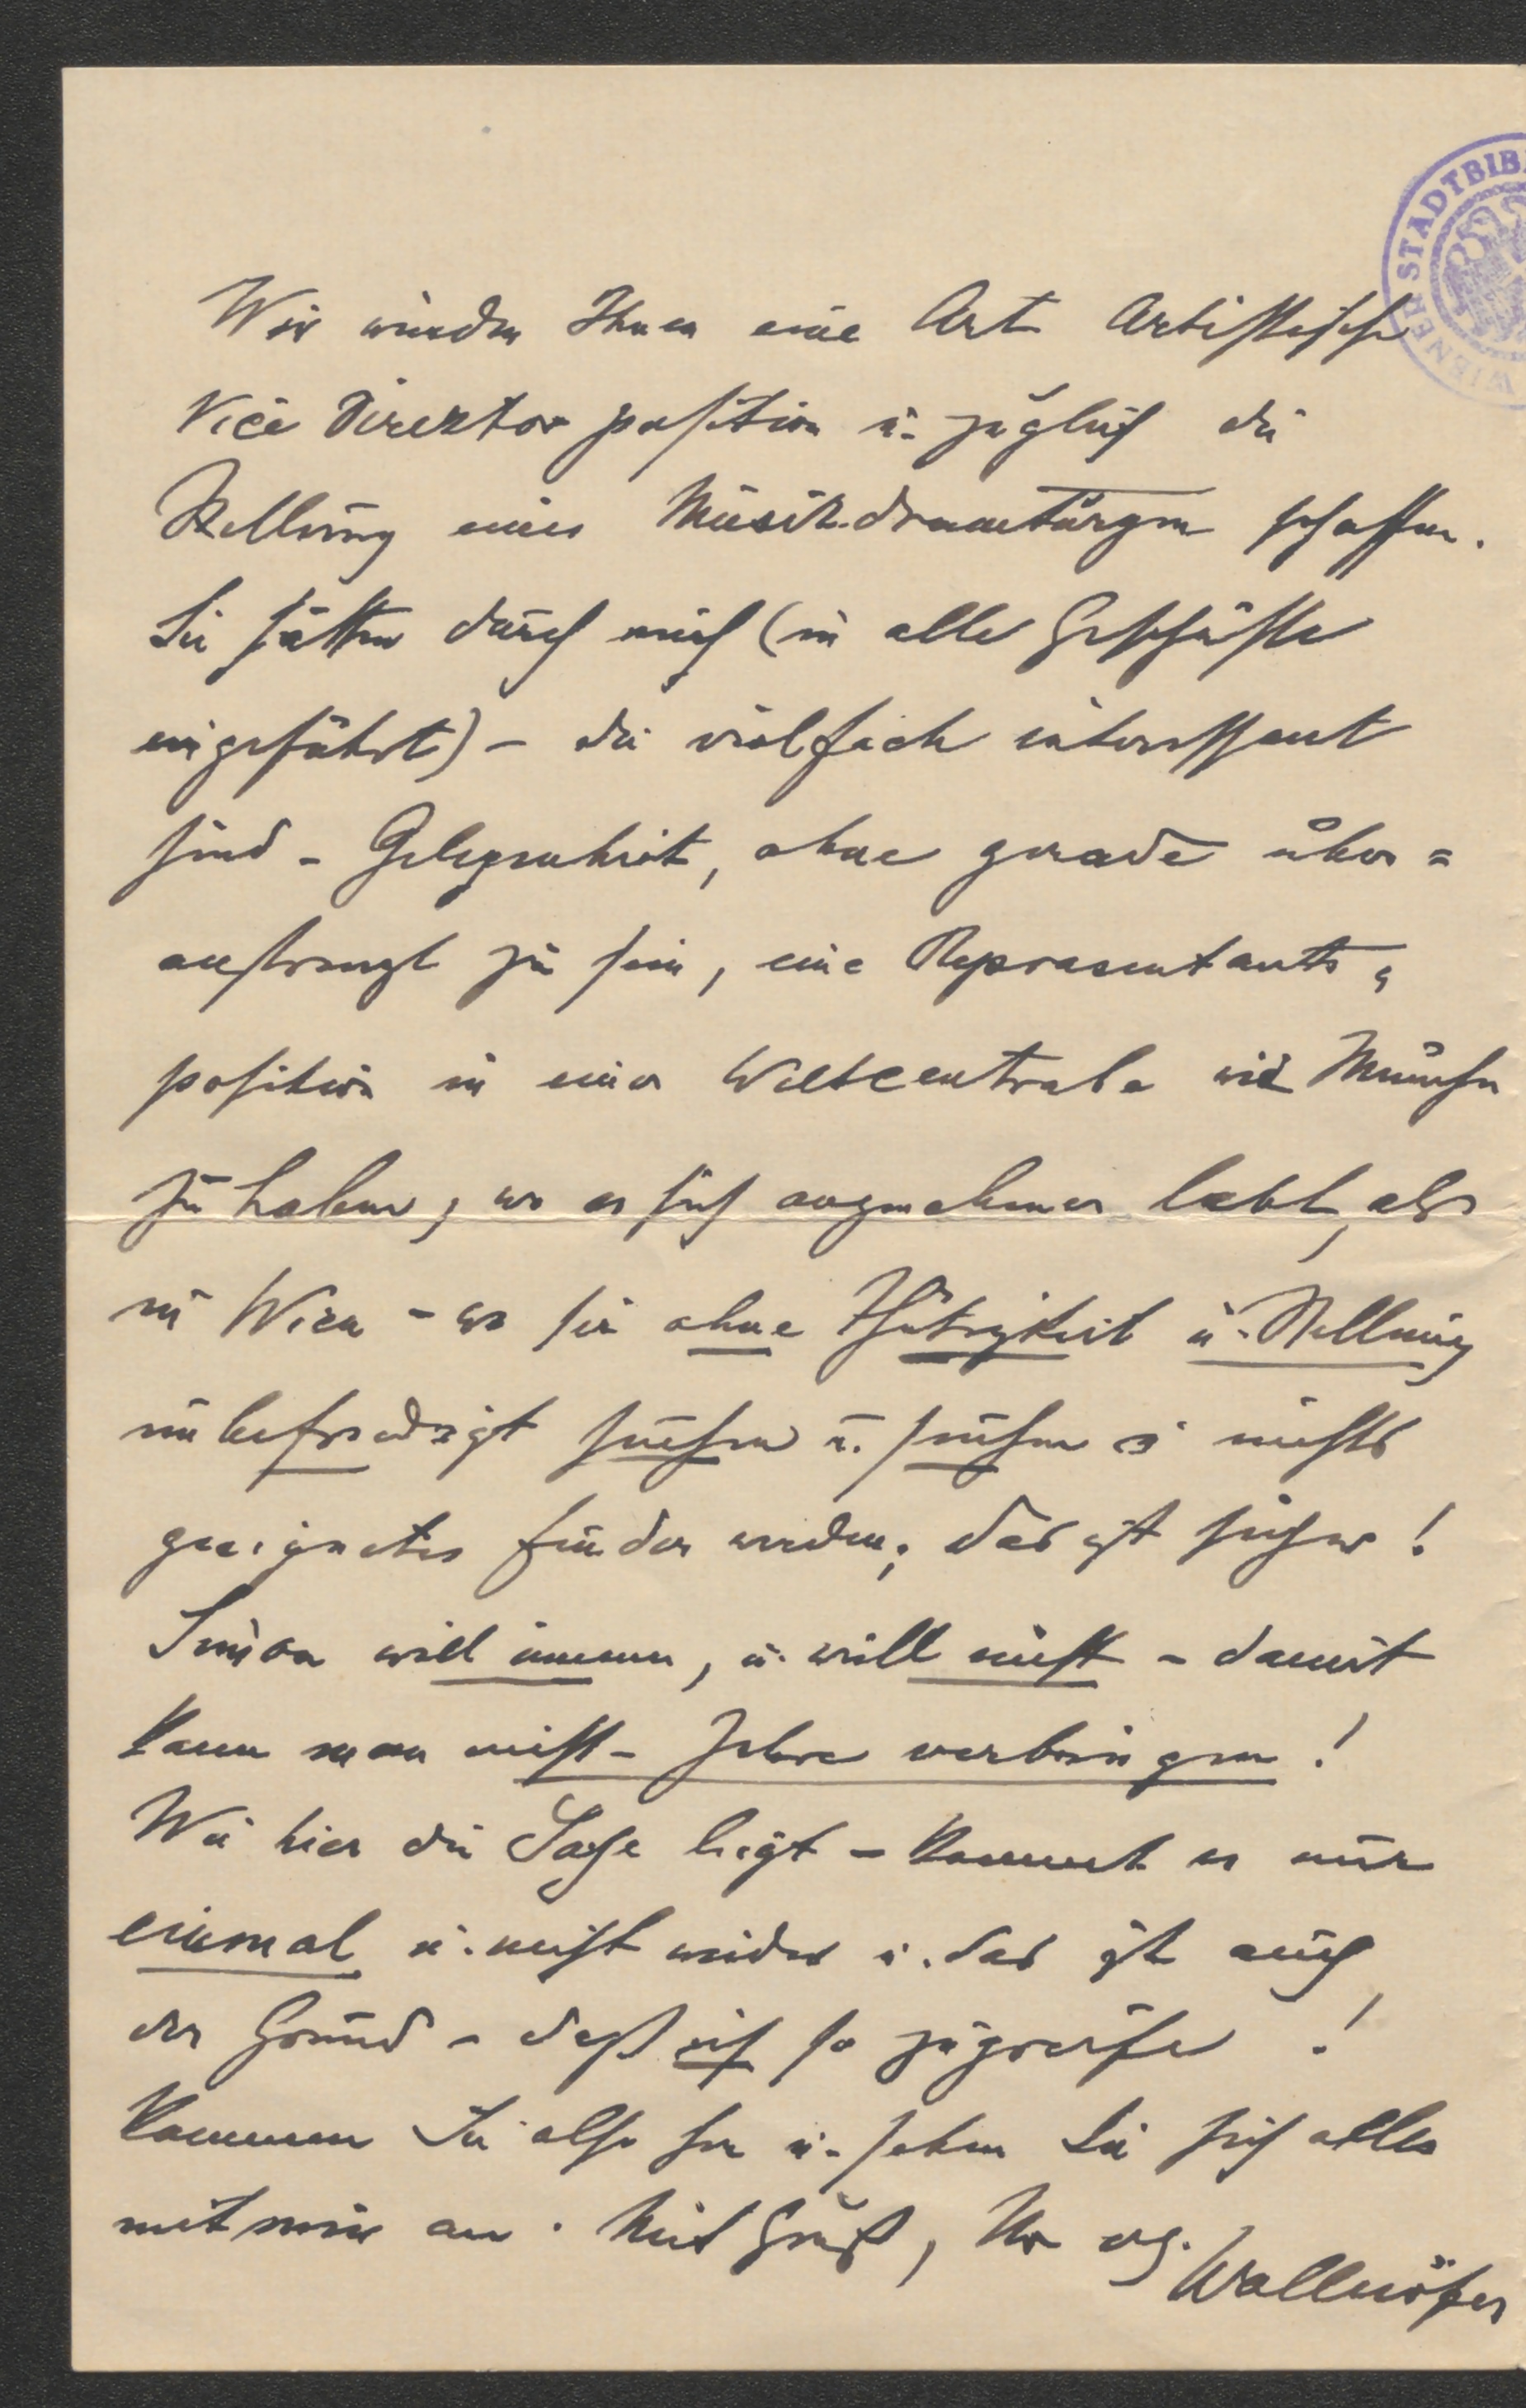 Wir würden Ihnen eine Art Artistische
Vice Direktor position u. zugleich die
Stellung eines Musikdramaturgen schaffen.
Sie hätten durch mich (in alle Geschäfte
eingeführt) – die vielfach interessant
sind – Gelegenheit, ohne gerade über=
anstrengt zu sein, eine Repraesentants=
position in einer Weltcentrale wie München
zu haben, wo es sich angenehmer lebt, als
in Wien – wo sie ohne Thätigkeit u. Stellung
unbefriedigt suchen u. suchen u nichts
geeignetes finden werden; das ist sicher!
Simon will immer, u. will nicht – damit
kann man nicht – Jahre verbringen!
Wie hier die Sache liegt – kommt es nur
einmal u. nicht wieder u. das ist auch
der Grund – daß ich so zugreife!
Kommen Sie also her u. sehen Sie sich alles
mit mir an. Mit Gruß, Ihr erg.
Wallnöfer
WIENER STADTBIB